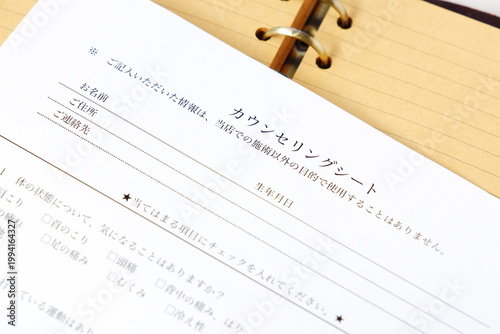 カウンセリングシート
※ ご記入いただいた情報は、当店での施術以外の目的で使用することはありません。
お名前 生年月日
ご住所
ご連絡先
★当てはまる項目にチェックを入れてください。★
1 体の状態について、気になることはありますか?
肩こり □首のこり □頭痛 □背中の痛み、はり
の疲れ □足の痛み □むくみ □冷え性
ている運動はあり
Adobe Stock | #1994164327